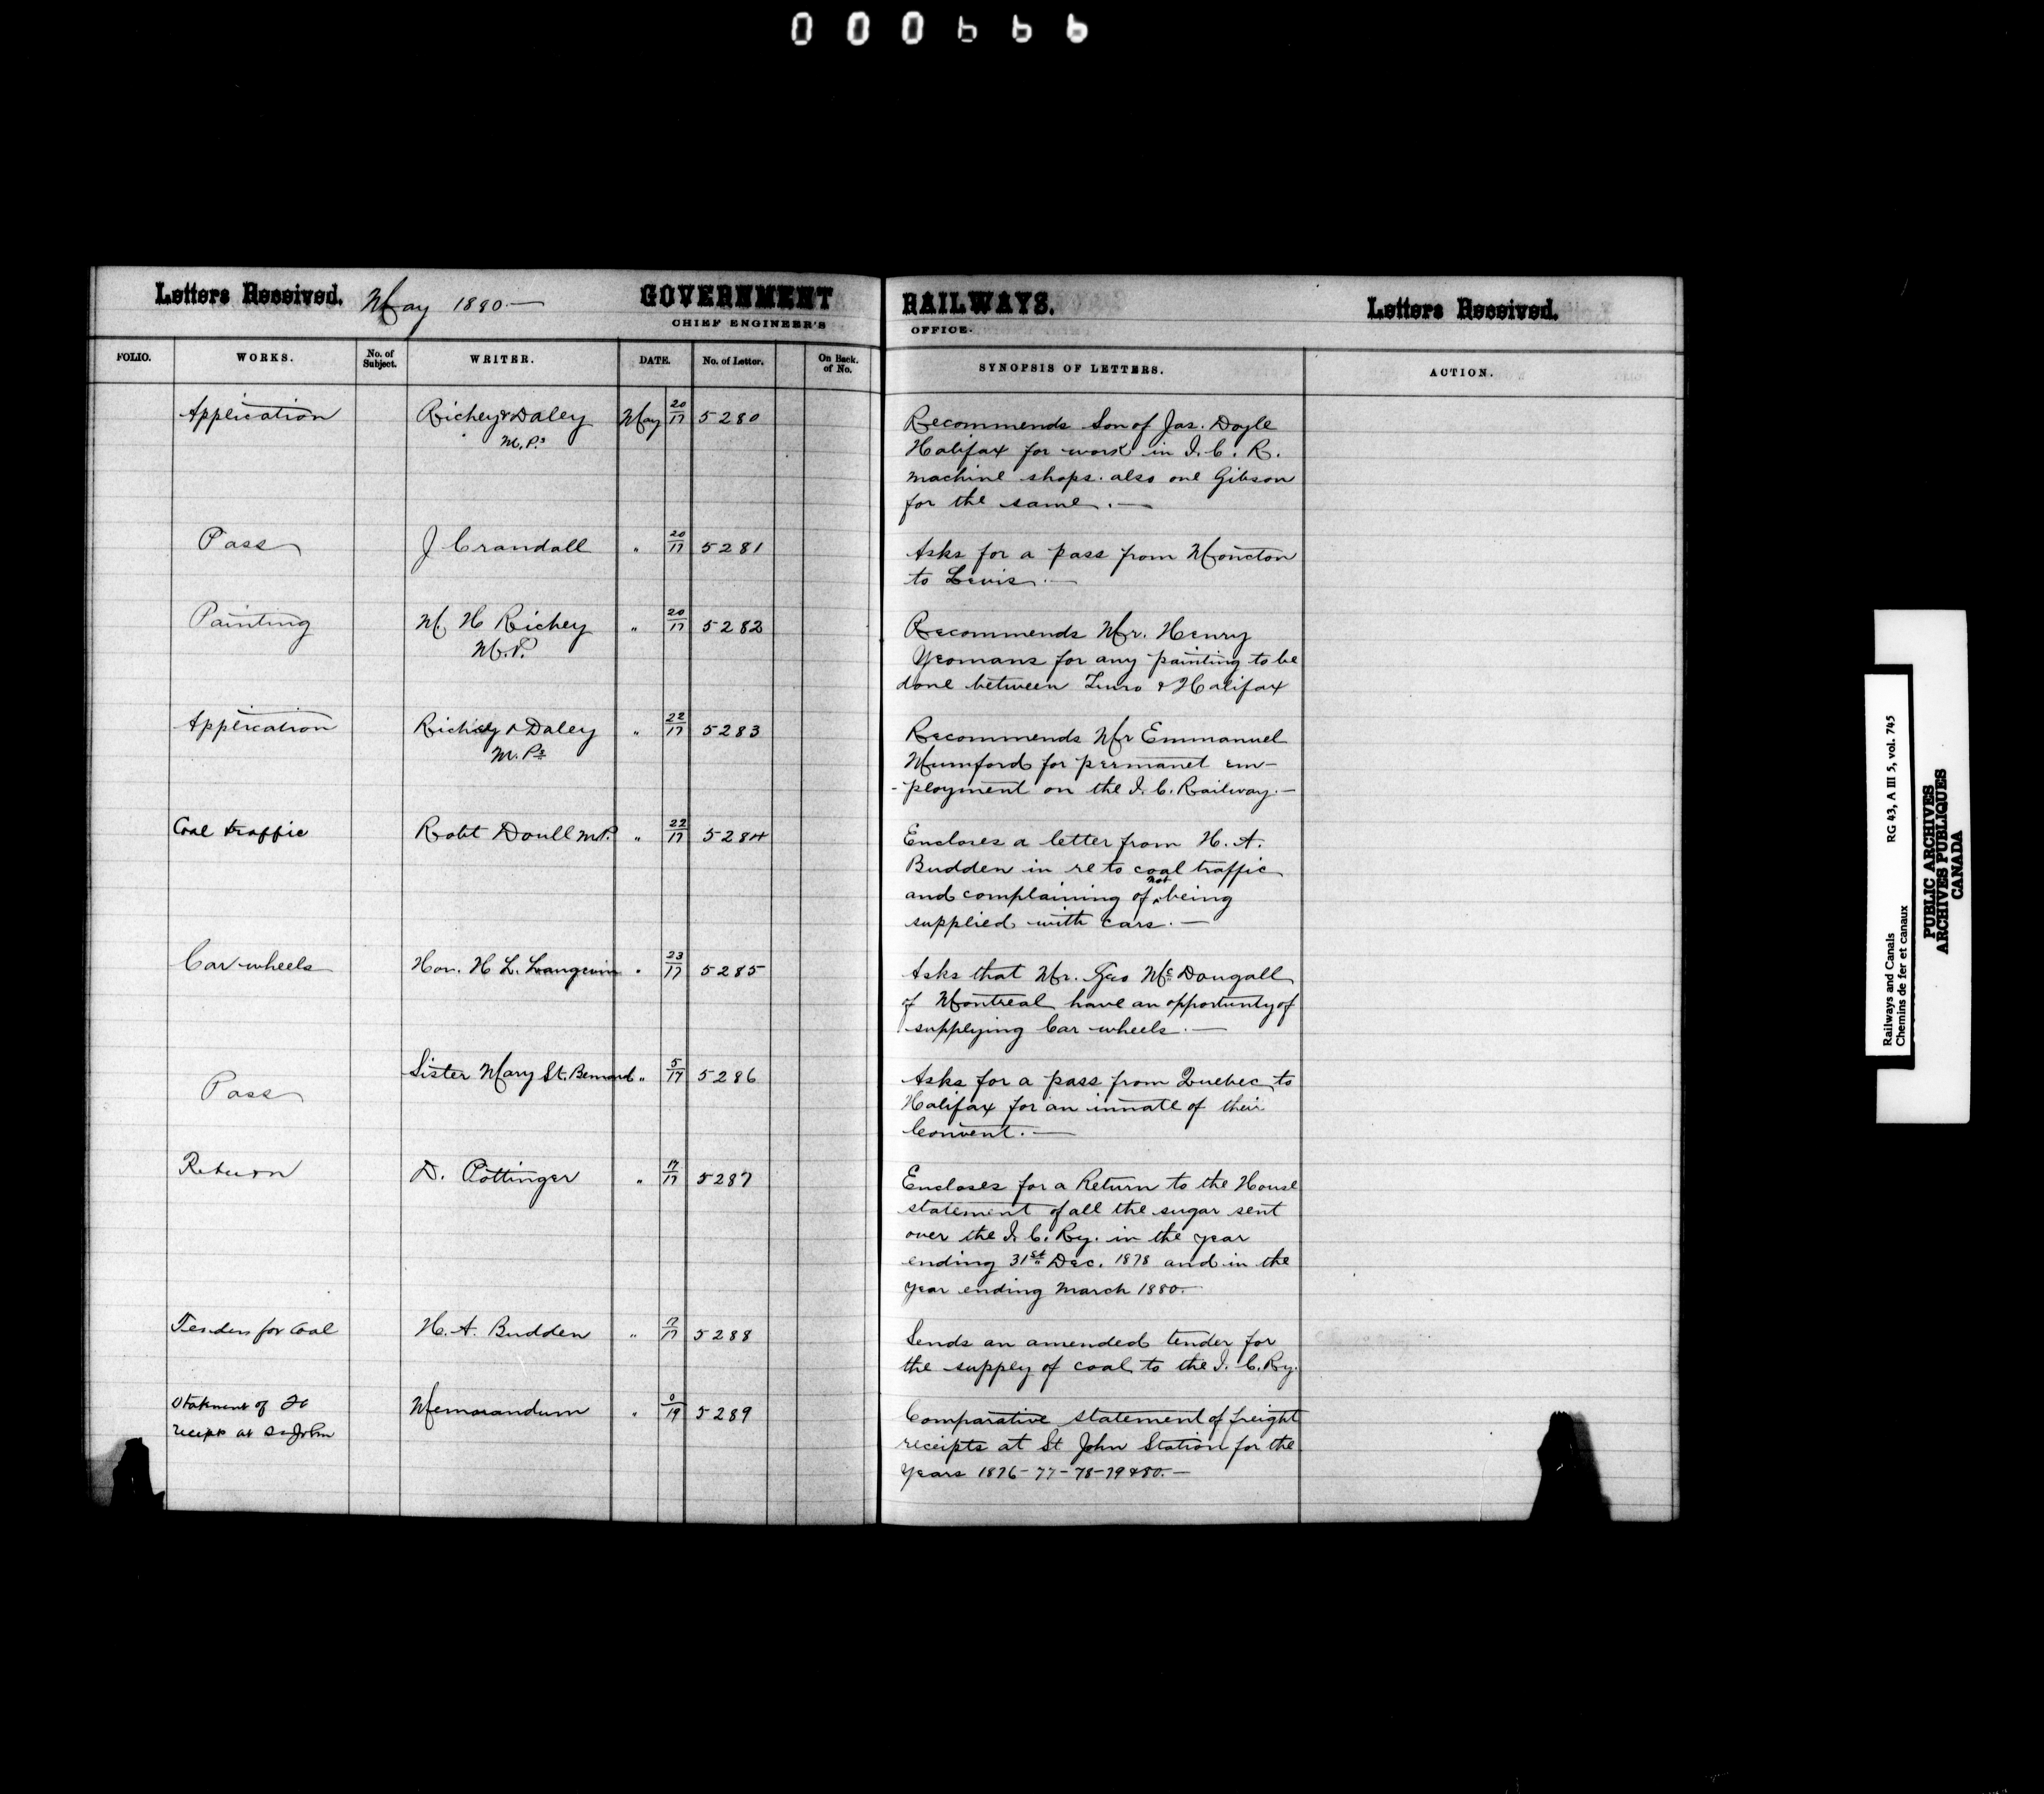 000666
Letters Received. May 1880.— GOVERNMENT RAILWAYS. Letters Received.
CHIEF ENGINEER'S OFFICE.
FOLIO. WORKS. No. of Subject. WRITER. DATE. No. of Letter. On Back of No. SYNOPSIS OF LETTERS. ACTION.
Application Richey & Daley May 20/17 5280 Recommends Son of Jas. Doyle
M.Ps Halifax for work in I. C. R.
machine shops. also one Gibson
for the same.—
Pass J Crandall " 20/17 5281 Asks for a pass from Moncton
to Levis.—
Painting M. H Richey " 20/17 5282 Recommends Mr. Henry
M.P. Yeomans for any painting to be
done between Truro & Halifax
Application Richey & Daley " 22/17 5283 Recommends Mr Emmanuel
M.Ps Mumford for permanet em-
-ployment on the I. C. Railway.—
Coal traffic Robt Doull M.P. " 22/17 5284 Encloses a letter from H. A.
Budden in re to coal traffic
and complaining of not being
supplied with cars.—
Car wheels Hon. H L. Langevin " 23/17 5285 Asks that Mr. Geo McDougall
of Montreal have an opportunty of
supplying Car wheels.—
Pass Sister Mary St. Bernard " 5/17 5286 Asks for a pass from Quebec to
Halifax for an inmate of their
Convent.—
Return D. Pottinger " 17/17 5287 Encloses for a Return to the House
statement of all the sugar sent
over the I. C. Ry. in the year
ending 31st Dec. 1878 and in the
year ending March 1880.—
Tenders for Coal H. A. Budden " 17/17 5288 Sends an amended tender for
the supply of coal to the I. C. Ry.
Statement of Memorandum " 0/19 5289 Comparative statement of freight
receipts at St John receipts at St John Station for the
Years 1876-77-78-79 & 80.—
Railways and Canals RG 43, A III 5, vol. 745
Chemins de fer et canaux
PUBLIC ARCHIVES
ARCHIVES PUBLIQUES
CANADA